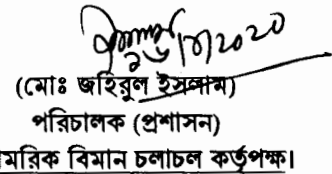 (মোঃ জহিরুল ইসলাম)
পরিচালক (প্রশাসন)
মরিক বিমান চলাচল কর্তৃপক্ষ।